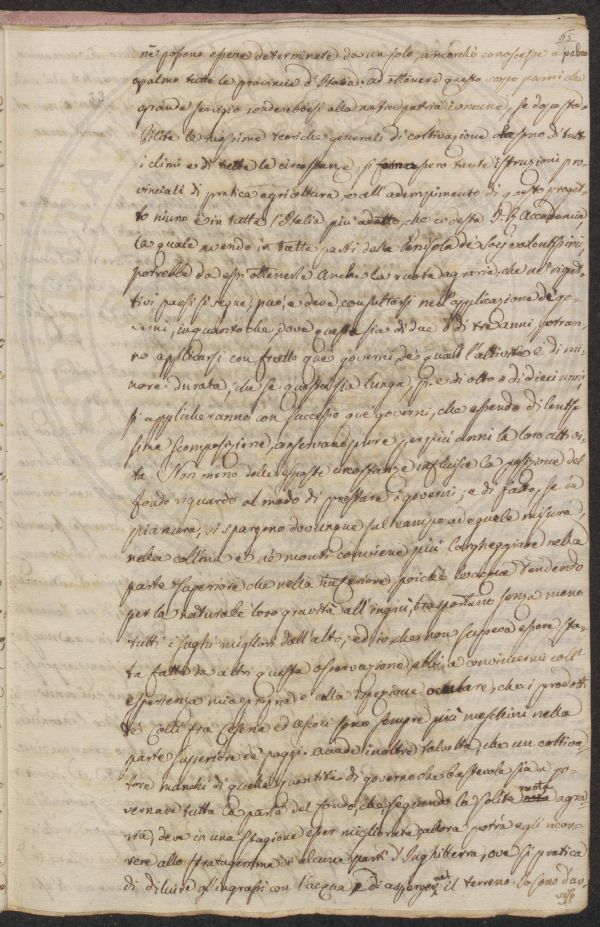 65
nè possono essere determinate da un solo, ancorchè conoscesse a palmo
a palmo tutte le provincie d'Italia. ad ottenere questo scopo parmi che
grande servigio renderebbesi alla nostra patria comune, se dopo sta-
bilite le massime teoriche generali di coltivazione ad uso di tutti
i climi e di tutte le circostanze, si formassero tante istruzioni pro-
vinciali di pratica agricoltura, e all'adempimento di questo proget-
to niuno è in tutta l'Italia più adatto, che codesta I. R. Accademia,
la quale avendo in tutte parti della Penisola de' Socj valentissimi
potrebbe da essi ottenerle. Anche la ruota agraria, che ne' rispet-
tivi paesi si segue, può, e deve, consultarsi nell'applicazione de' go-
verni, inquantochè dove questa sia di due o di tre anni potran-
no applicarsi con frutto quei governi, de' quali l'attività è di mi-
nore durata, che se questa sia lunga, p. e. di otto o di dieci anni
si applicheranno con successo que' governi, che essendo di lentis-
sima scomposizione, conservano pure per più anni la loro attivi-
tà. Non meno delle esposte circostanze influisce la posizione del
fondo riguardo al modo di prestare i governi; e di fatto, se in
pianura, si spargono dovunque sul campo ad eguale misura,
nella collina e ne' monti conviene più largheggiare nella
parte superiore che nella inferiore, poichè le acque tendendo
per la naturale loro gravità all'ingiù, trasportano senza meno
tutti i sughi migliori dall'alto; ed io che non sapeva essere sta-
ta fatta da altri questa osservazione, ebbi a convincermi coll'
esperienza mia propria e colla ispezione oculare, che i prodotti
de' colli fra Cesena ed Ascoli sono sempre più meschini nella
parte superiore de' poggi. Accade inoltre talvolta, che un coltiva-
tore manchi di quella quantità di governo che bastevole sia a go-
vernare tutta la parte del fondo, che, seguendo la solita ruota agra-
ria, deve in una stagione esser migliorata, allora potrà egli ricor-
rere allo stratagemma di alcune parti d'Inghilterra, ove si pratica
di diluire gl'ingrassi con l'acqua e di aspergerne il terreno. Io sono d'av-
viso